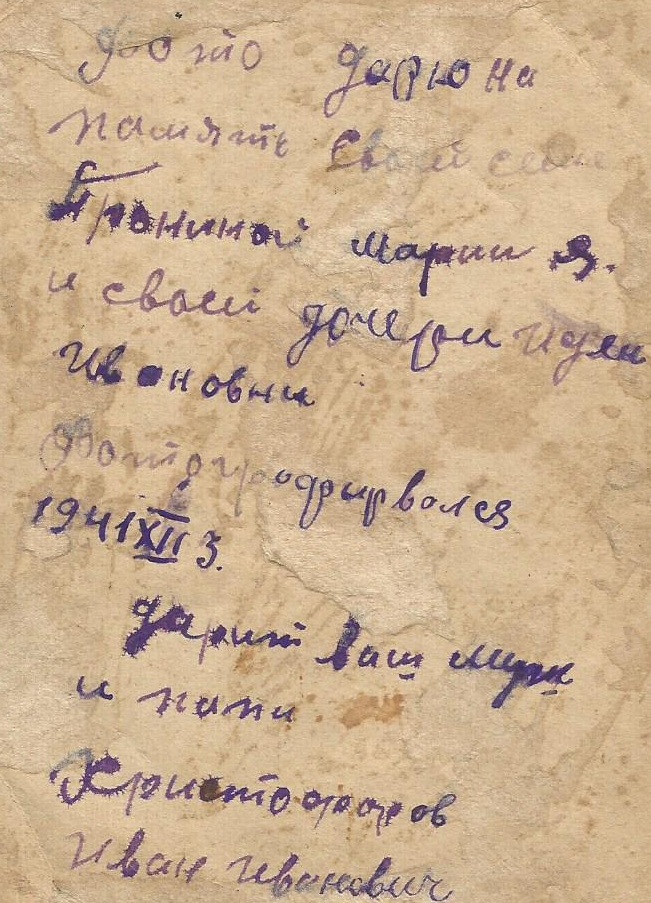 Фото дарю на
память своей семе
Прониной марии Я.
и своей дочери Идеи
Ивоновни
Фотогрофирволся
1941 XII 3.
дарит ваш муж
и папи
Христофоров
Иван Иванович